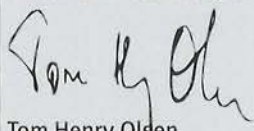 Tom Hy Olsen
Tom Henry Olsen